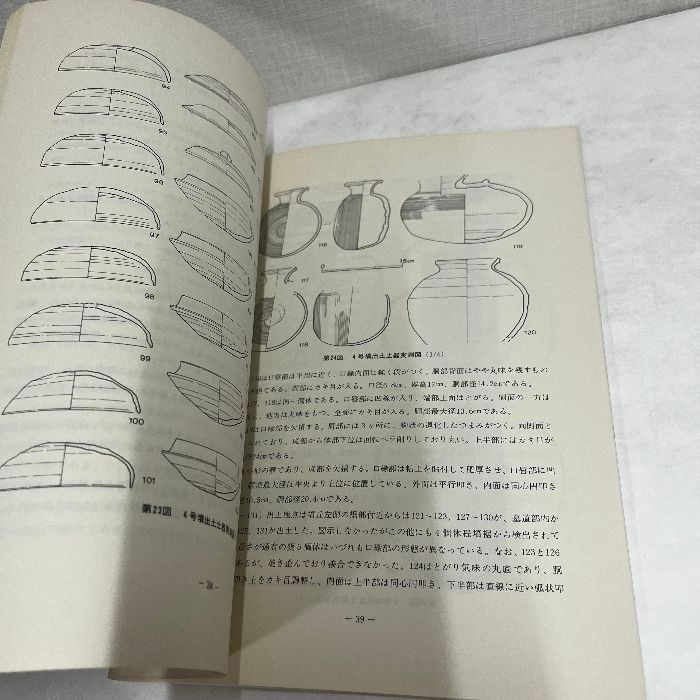 94
95
96
97
98
99
100
101
第23図 4号墳出土土器実測図
— 38 —
115
119
0 15cm
117
118
120
第24図 4号墳出土土器実測図 (1/4)
は口唇部は平坦に近く、口縁内面に軽く段がつく。胴部背面はやや丸味を残すもの
である。胴部にカキ目が入る。口径6.8cm、器高17cm、胴部径14.2cmである。
、118は同一個体である。口唇部に凹線が入り、端部上面はとがる。胴面の一方は
、他方は丸味をもつ。全面にカキ目が入る。胴部最大径13.6cmである。
は口縁部を欠損する。肩部には3ヶ所に、鉤状の退化したつまみがつく。両側面と
れており、底部から体部下位は回転ヘラ削りしており丸い。上半部にはカキ目が
24cmである。
小形の甕であり、底部を欠損する。口縁部は粘土を貼付して肥厚させ、口唇部に凹
胴部最大径は中央より上位に位置している。外面は平行叩き、内面は同心円叩き
10.5cm、胴部径20.4cmである。
131) 出土地点は墳丘左側の裾部付近からは121~123、127~130が、墓道部内か
、131が出土した。図示しなかったがこの他にも4個体程墳裾から検出されて
の甕5個体はいづれも口縁部の形態が異なっている。なお、123と126
あるが、焼き歪んでおり接合できなかった。124はとがり気味の丸底であり、胴
叩き上をカキ目調整し、内面は上半部は同心円叩き、下半部は直線に近い弧状叩
— 39 —